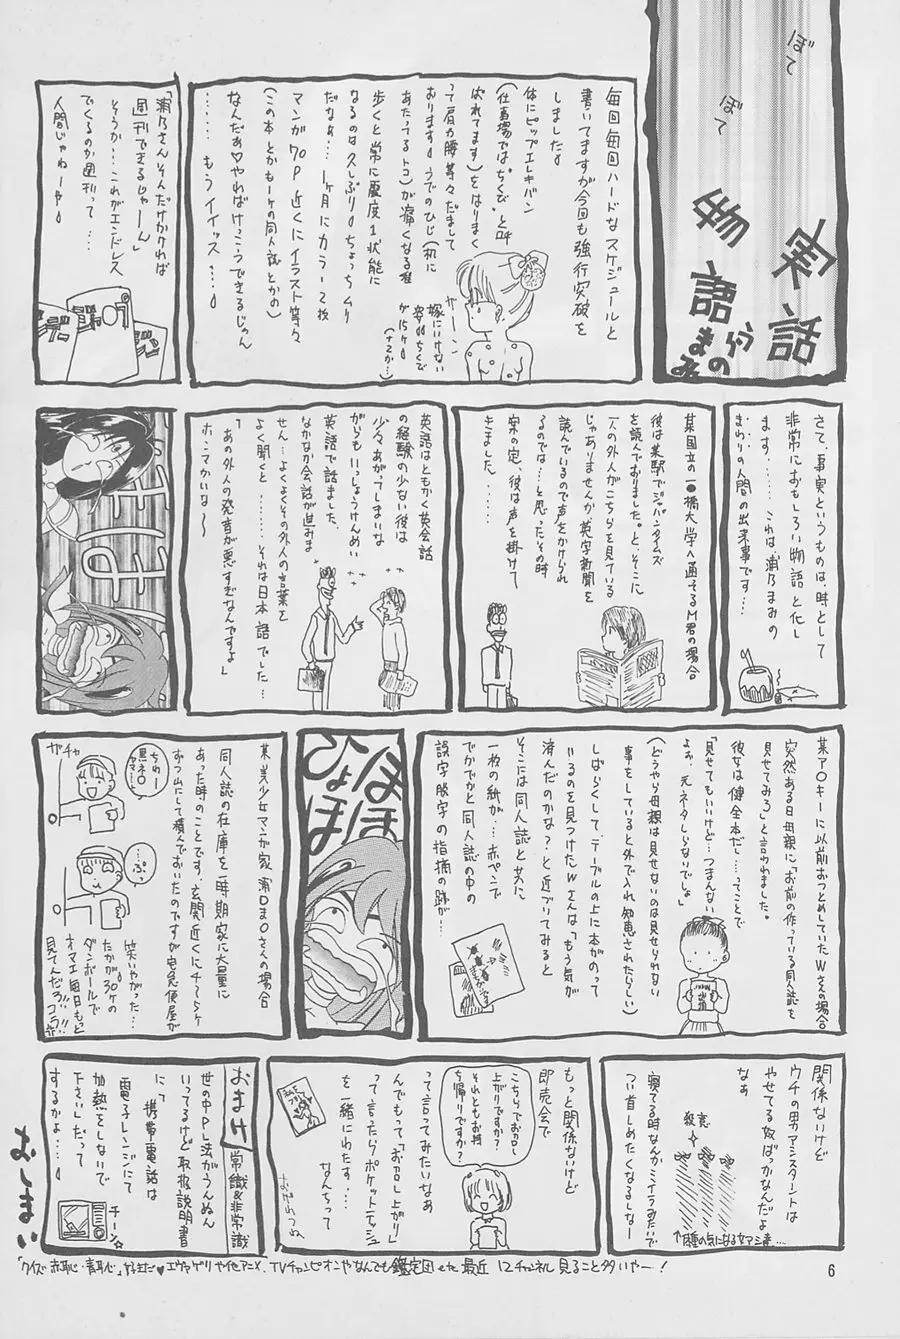 ぼて
ぼて
実話
物語
まみの
毎回毎回ハードなスケジュールと
書いてますが今回も強行突破を
しました。
体にピップエレキバン
(仕事場では"ちくび"と呼
ばれてます)をはりまく
って肩力腰等々だまして
おります。うでのひじ(机に
あたってるトコ)が痛くなる程
歩くと常に震度1状態に
なるのは久しぶり。ちょっちムリ
だなぁ…1ヶ月にカラー2枚
マンガ70P近くにイラスト等々
(この本とかもー1ケの同人誌とかの)
なんだぁ♡やればけっこうできるじゃん
……もうイイッス…。
ザーン
嫁にいけない
姿。ちくで
が15ケ。
(+2か…)
「浦乃さんそんだけかければ
週刊できるじゃーん」
そうか…これがエンドレス
でくるのか週刊って…
人間じゃねーや。
さて、事実というものは、時として
非常におもしろい物語と化し
ます……これは浦乃まみの
まわりの人間の出来事です…
某国立の一●橋大学へ通ってるM君の場合
彼は某駅でジャパンタイムズ
を読んでおりました。と、そこに
一人の外人がこちらを見ている
じゃありませんか英字新聞を
読んでいるので声をかけられ
るのでは…と思ったその時
案の定、彼は声を掛けて
きました……
英語はともかく英会話
の経験の少ない彼は
少々あがってしまいな
がらもいっしょうけんめい
英語で話ました。
なかなか会話が進みま
せん…よくよくその外人の言葉を
よく聞くと……それは日本語でした…
「あの外人の発音が悪すぎなんですよ」
ホンマかいな～
某ア○キーに以前おつとめしていたWさんの場合
突然ある日母親に「お前の作っている同人誌を
見せてみろ」と言われました。
彼女は健全本だし…ってことで
「見せてもいいけど…つまんない
よぉ、元ネタしらないでしょ」
(どうやら母親は見せないのは見せられない
事をしていると外で入れ知恵されたらしい)
しばらくして、テーブルの上に本がのって
いるのを見つけたWさんは「もう気が
済んだのかな?」と近づいてみると
そこには同人誌と共に
一枚の紙が…赤ペンで
でかでかと同人誌の中の
誤字脱字の指摘の跡が…
ほほ
ひょほ
某・美少女マンガ家 浦○ま○さんの場合
同人誌の在庫を一時期家に大量に
あった時のことです。玄関近くにチ～らケ
ずつ山にして積んでおいたのですが宅急便屋が
ガチャ
ちわー
黒ネ○
ヤマ○ト
…ぷ
笑いやがった…
たかが30ケの
ダンボールで
オマエ毎日もっと
見てんだろ!!コラ!!
関係ないけど
ウチの男アシスタントは
やせてる奴ばっかなんだよ
なぁ
殺意
寝てる時なんかミイラみたいで
つい首しめたくなるしなー
↑体の気になる女アシ達…
もっと関係ないけど
即売会で
こちらでお召し
上がりですか?
それともお持
ち帰りですか?
って言ってみたいなぁ
んでもって、"お召し上がり"
って言たらポケットティッシュ
を一緒にわたす…
なんちって
おまけ 常識&非常識
世の中PL法がうんぬん
いってるけど取扱説明書
に「携帯電話は
電子レンジにて
加熱をしないで
下さい」だって
するかよ…。
チーン☆
おしまい
「クイズ赤恥・青恥」なまだ♥エヴァゲリや他アニメ、TVチャンピオンやなんでも鑑定団etc最近12チャンネル見ること多いやー!
6